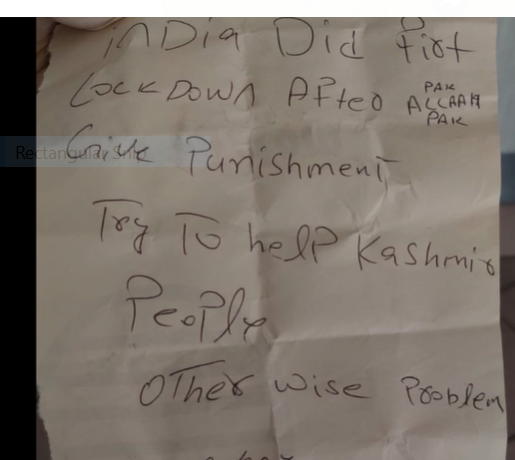 inDia Did first
LOCKDOWN After PAK ALLAAH PAK
Give Punishment
Try To help Kashmir
People
OTher wise Problem